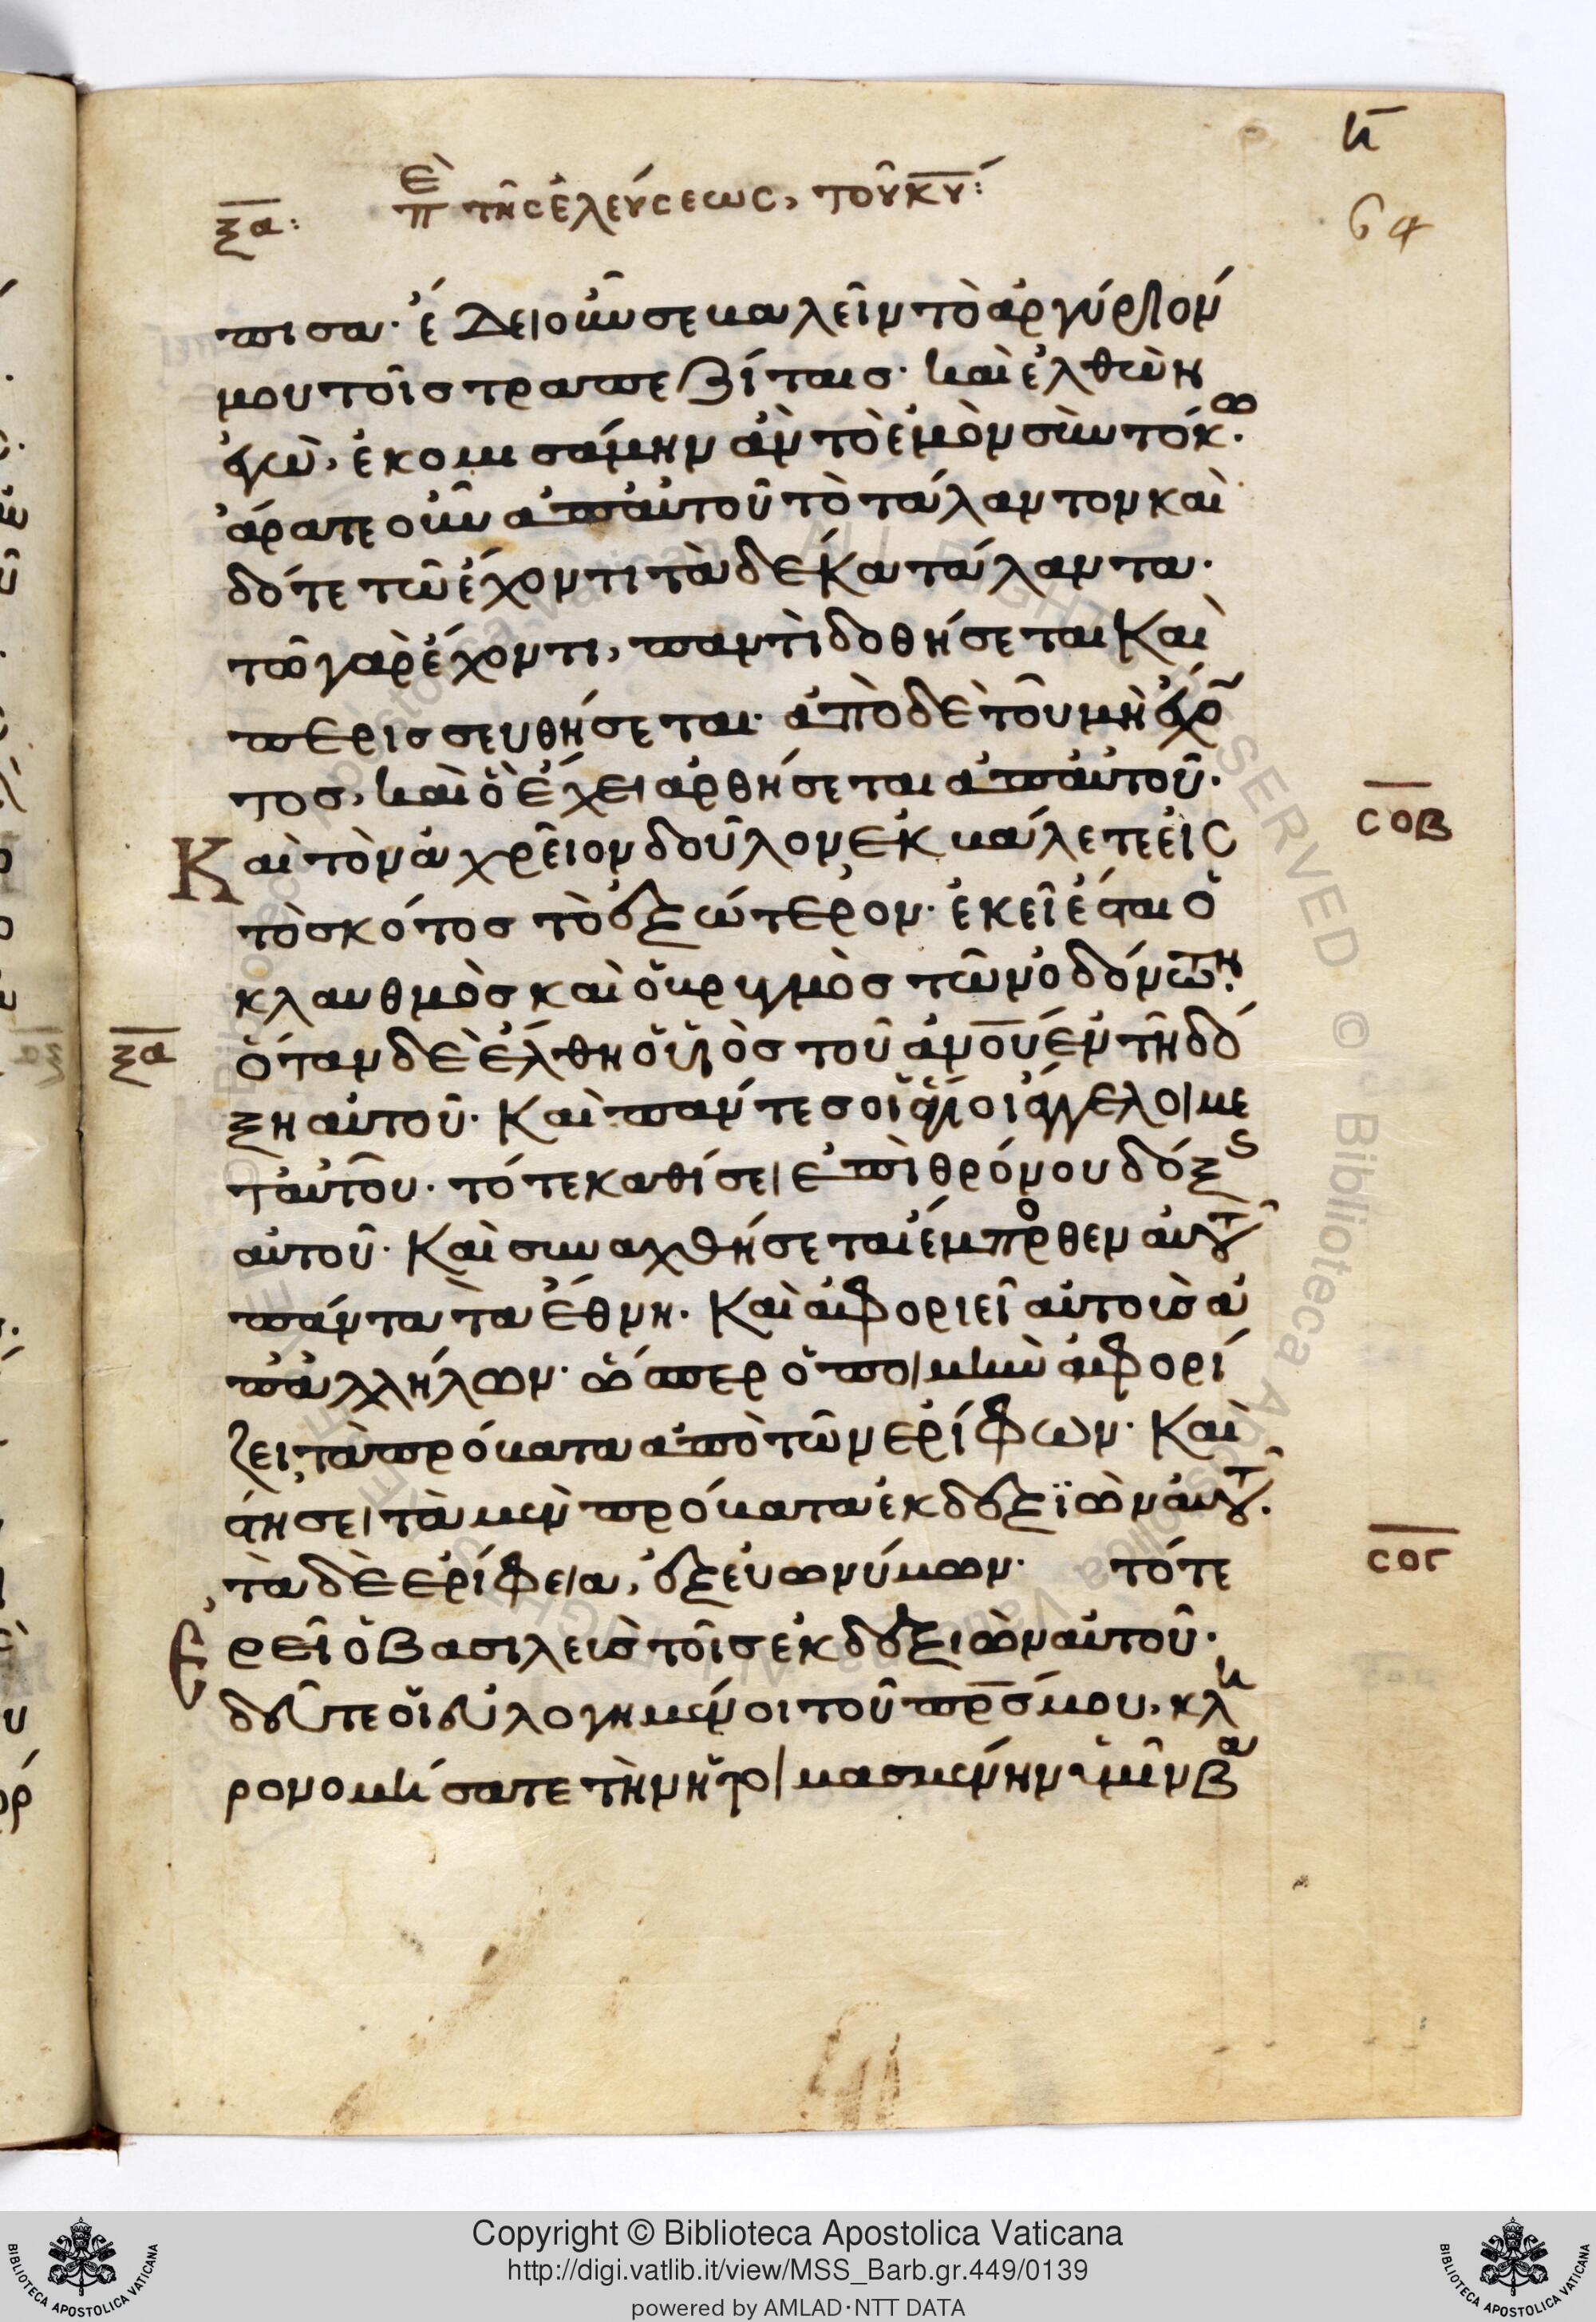 η̅
64
ξ̅α̅: πε τῆς ἐλεύσεως, τοῦ κ̅υ̅:
πισα· ἔδει οὖν σε βαλεῖν τὸ ἀργύριόν
μου τοῖς τραπεζίταις· καὶ ἐλθὼν
ἐγὼ, ἐκομισάμην ἂν τὸ ἐμὸν σὺν τόκω·
ἄρατε οὖν ἀπ αὐτοῦ τὸ τάλαντον καὶ
δότε τῶ ἔχοντι τὰ δέκα τάλαντα·
τῶ γὰρ ἔχοντι, παντὶ δοθήσεται καὶ
περισσευθήσεται· ἀπὸ δὲ τοῦ μὴ ἔχο̅
τος, καὶ ὃ ἔχει ἀρθήσεται ἀπ αὐτοῦ·
Καὶ τὸν ἀχρεῖον δοῦλον ἐκβάλετε εἰς
σ̅ο̅β̅
τὸ σκότος τὸ ἐξώτερον· ἐκεῖ ἔσται ὁ
κλαυθμὸς καὶ ὁ βρυγμὸς τῶν ὀδόντων·
ξ̅α̅
ὅταν δὲ ἔλθη ὁ υἱὸς τοῦ ἀν̅ο̅υ̅ ἐν τῆ δό
ξη αὐτοῦ· Καὶ πάντες οἱ ἅγιοι ἄγγελοι με
τ αὐτοῦ· τότε καθίσει ἐπὶ θρόνου δόξης
αὐτοῦ· Καὶ συναχθήσεται ἔμπροσθεν αὐτοῦ
πάντα τὰ ἔθνη· Καὶ ἀφοριεῖ αὐτοὺς ἀ
π ἀλλήλων· ὥσπερ ὁ ποιμὴν ἀφορί
ζει τὰ πρόβατα ἀπὸ τῶν ἐρίφων· Καὶ
στήσει τὰ μὲν πρόβατα ἐκ δεξϊῶν αὐτοῦ·
τὰ δὲ ἐρίφεια, ἐξ εὐωνύμων· τότε
σ̅ο̅γ̅
Ἐρεῖ ὁ βασιλεὺς τοῖς ἐκ δεξιῶν αὐτοῦ·
δεῦτε οἱ εὐλογημένοι τοῦ π̅ρ̅σ̅ μου, κλη
ρονομήσατε τὴν ἡτοιμασμένην ὑμῖν βα
Copyright © Biblioteca Apostolica Vaticana
http://digi.vatlib.it/view/MSS_Barb.gr.449/0139
powered by AMLAD·NTT DATA
BIBLIOTECA APOSTOLICA VATICANA
BIBLIOTECA APOSTOLICA VATICANA